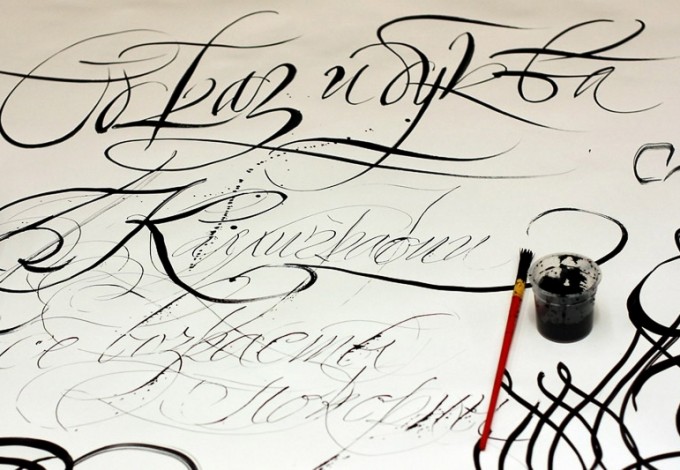 Образ и буква
Каллиграфии
возрасты
покорны